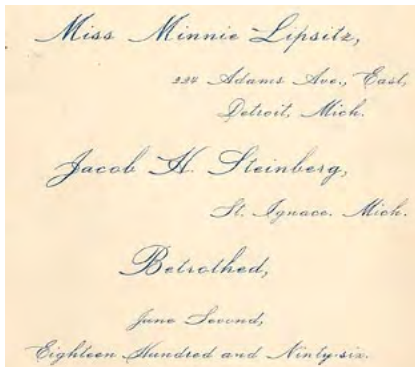 Miss Minnie Lipsitz,
224 Adams Ave., East,
Detroit, Mich.
Jacob H. Steinberg,
St. Ignace. Mich.
Betrothed,
June Second,
Eighteen Hundred and Ninty-six.